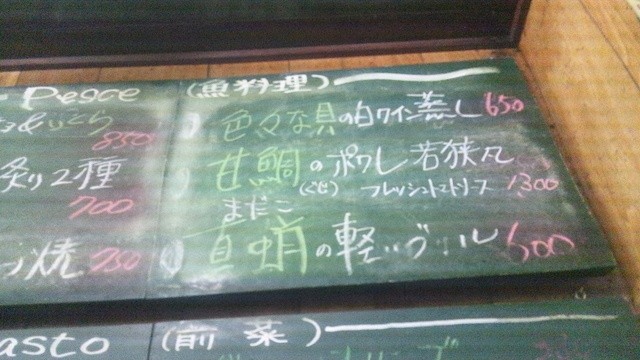 Pesce (魚料理)
色々な貝の白ワイン蒸し 650
850
甘鯛のポワレ 若狭風
炙り2種
(ぐじ) フレッシュトマトソース 1300
700
まだこ
真蛸の軽い 600
焼 750
asto (前菜)